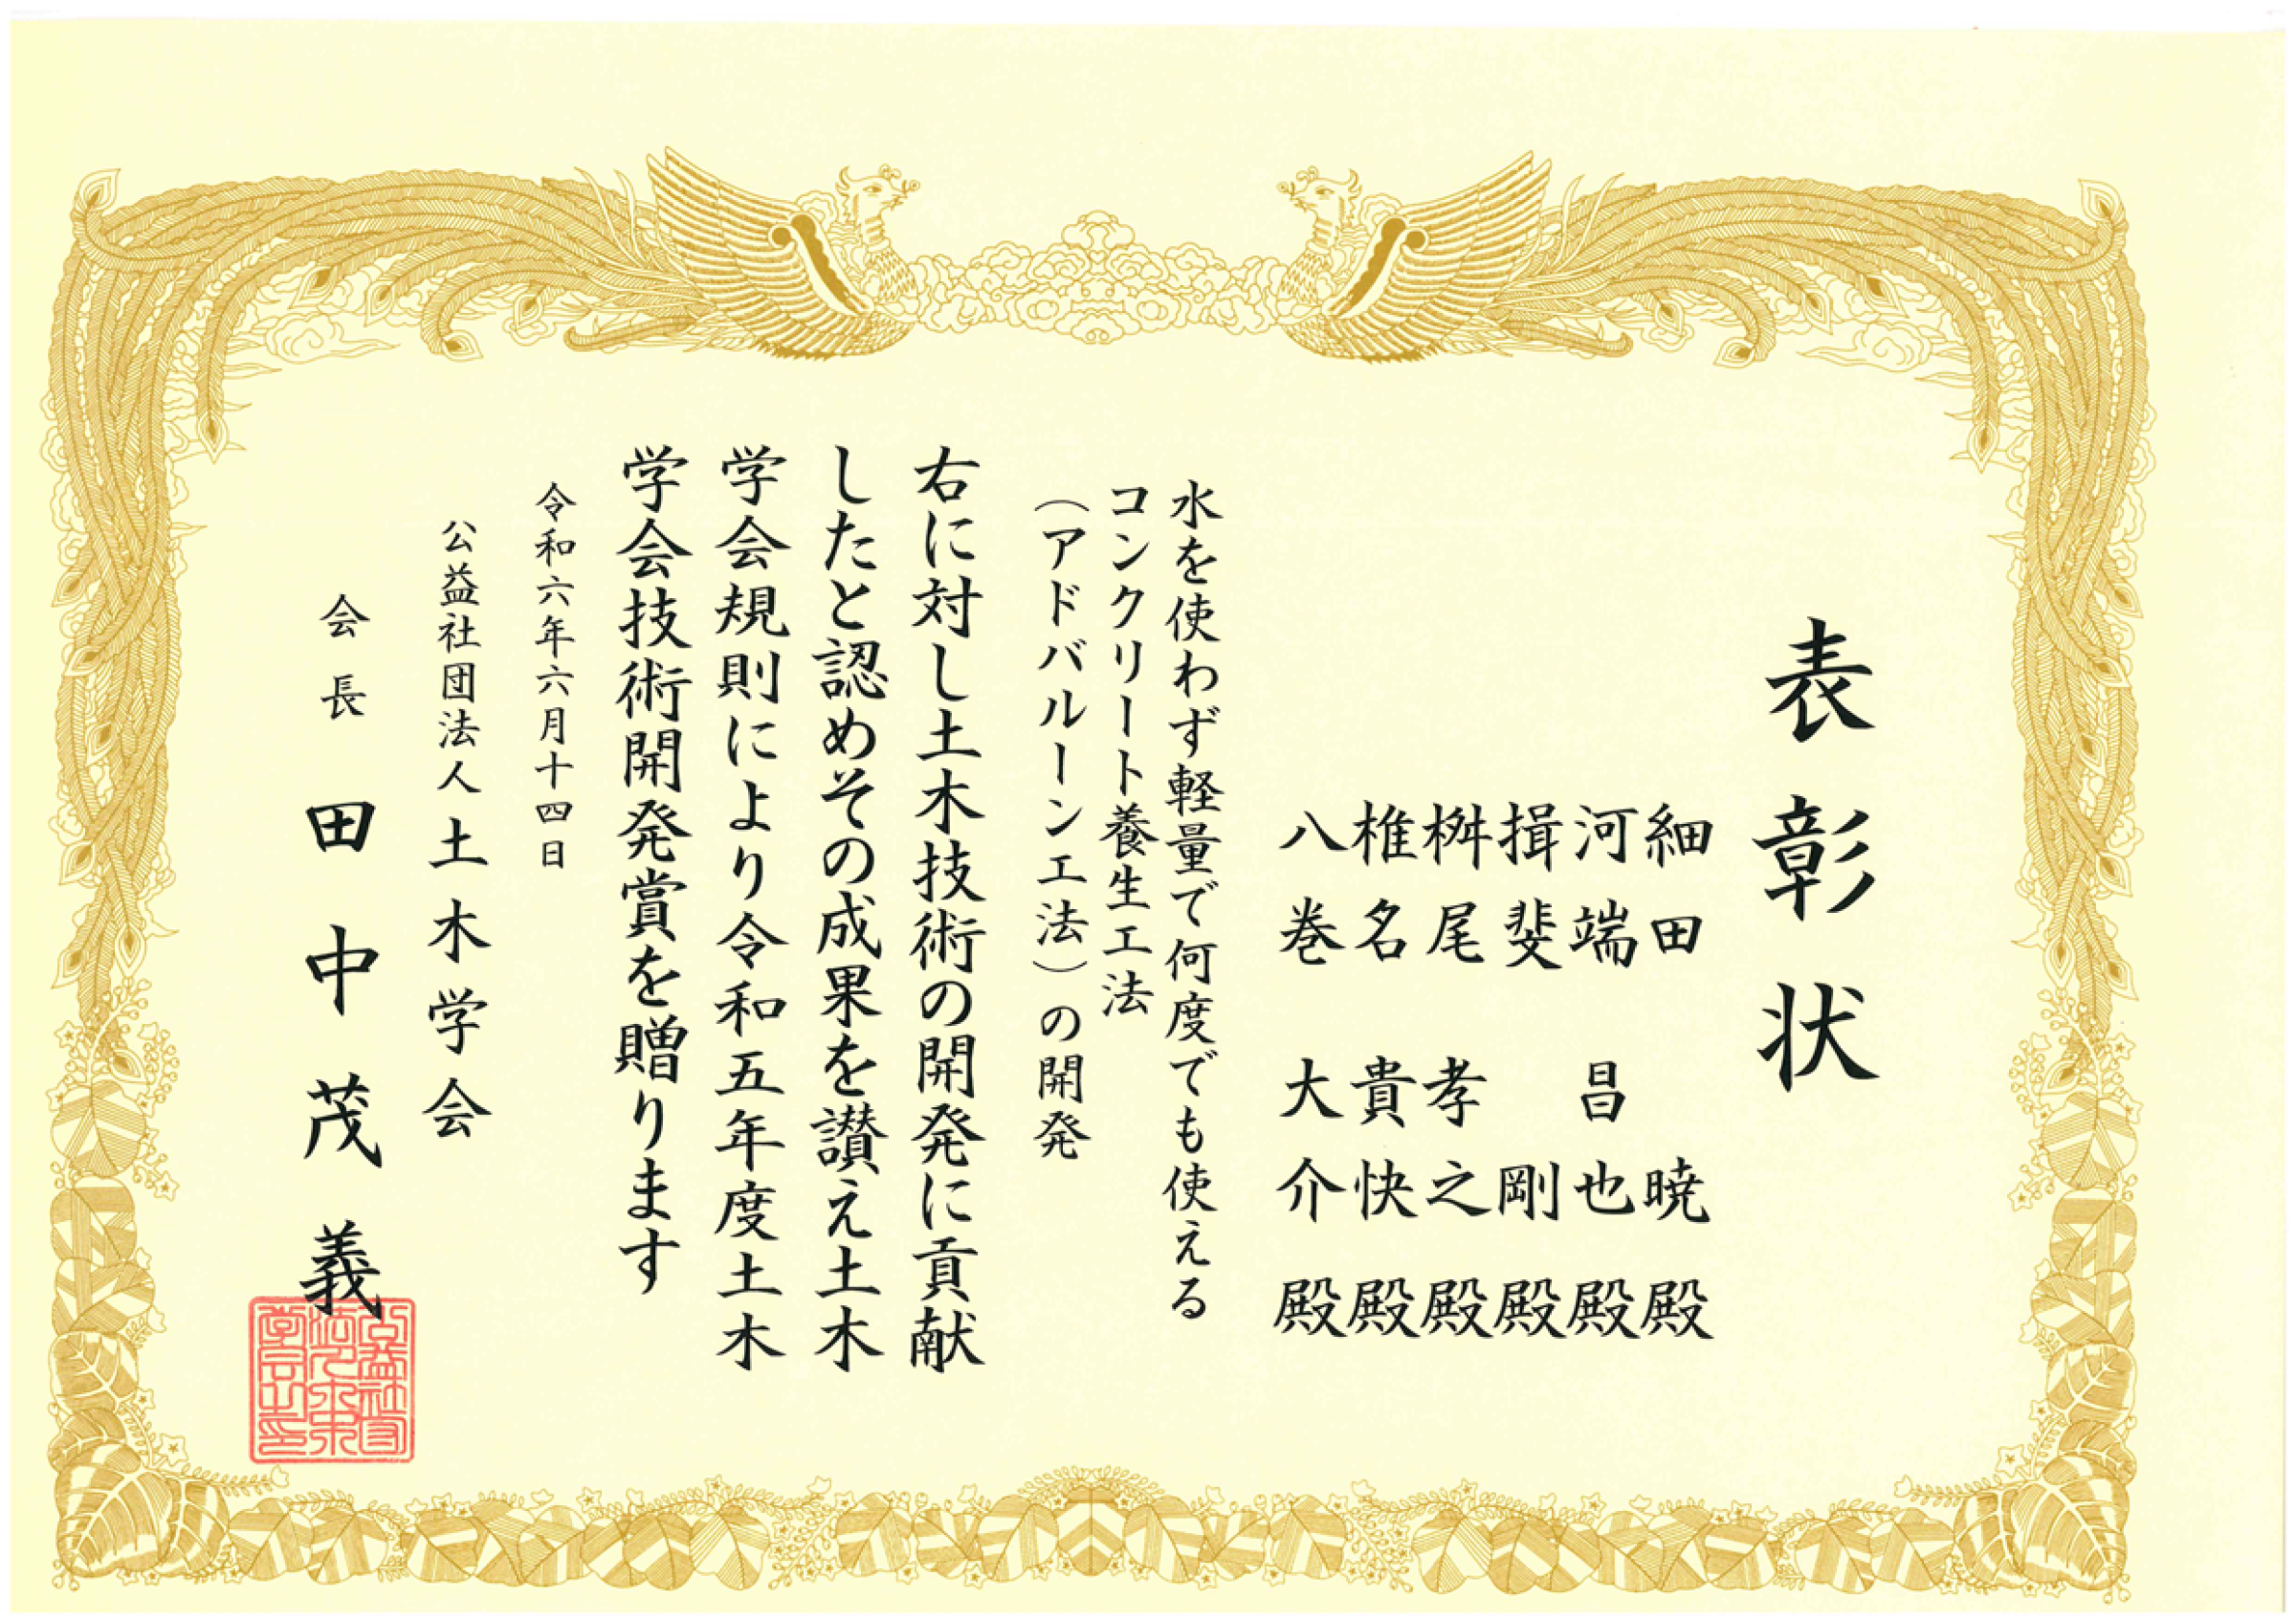 表彰状
細田 暁 殿
河端 昌也 殿
揖斐 剛 殿
桝尾 孝之 殿
椎名 貴快 殿
八巻 大介 殿
水を使わず軽量で何度でも使える
コンクリート養生工法
（アドバルーン工法）の開発
右に対し土木技術の開発に貢献
したと認めその成果を讃え土木
学会規則により令和五年度土木
学会技術開発賞を贈ります
令和六年六月十四日
公益社団法人 土木学会
会長 田中茂義